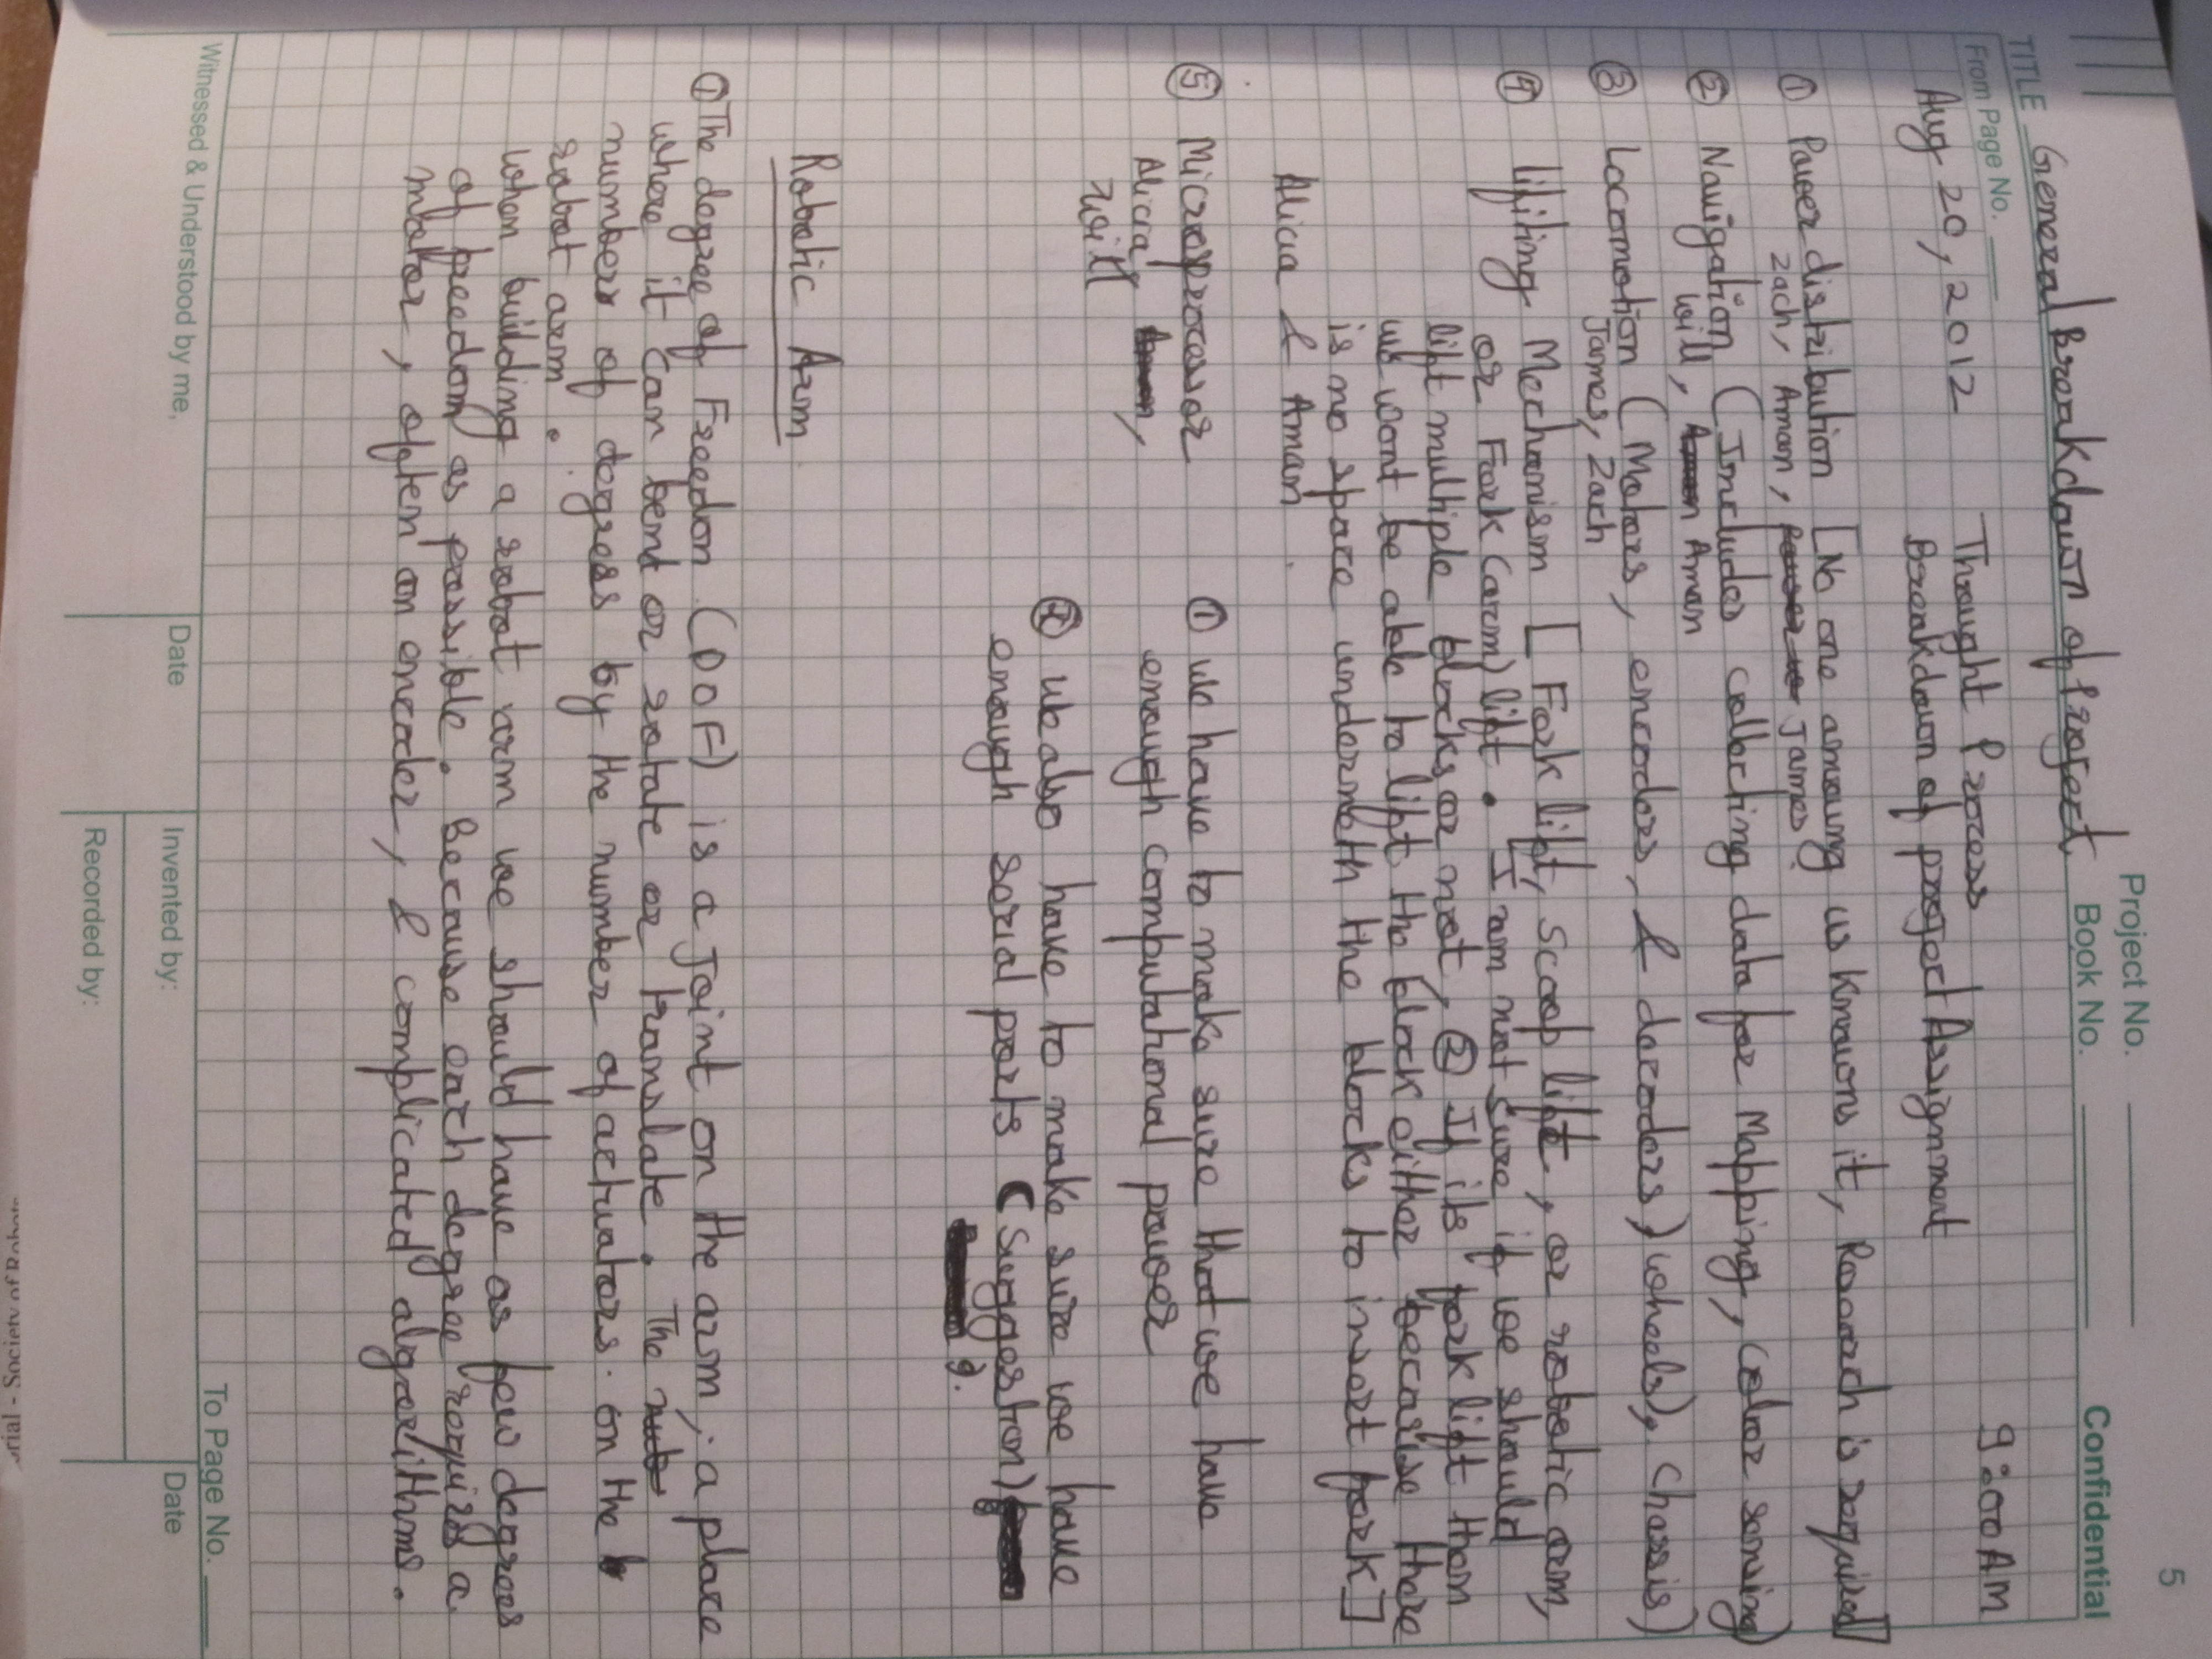 5
Project No.
Book No.
Confidential
TITLE General Breakdown of Project.
From Page No.
Aug 20, 2012 Thought Process 9:00 AM
Breakdown of project Assignment
① Power distribution [No one amoung us knows it, Research is required]
Zach, Aman, James
② Navigation (Includes collecting data for Mapping, Color sensing)
Will, Aman Aman
③ Locomotion (Motors, encoders, & decoders) wheels), Chassis)
James, Zach
④ lifting Mechanism [Fork lift, Scoop lift, or robotic arm,
or Fork (arm) lift. I am not sure if we should
lift multiple blocks or not, ② If its fork lift them
we wont be able to lift the block either because there
is no space underneth the blocks to insert fork]
Alicia & Aman.
⑤ Microprocessor ① we have to make sure that we have
Alicia, Aman, enough computational power
Will
② we also have to make sure we have
enough serial ports (Suggestion)
9.
Robotic Arm
① The degree of Freedon (DOF) is a Joint on the arm, a place
where it can bent or rotate or translate. The
number of degrees by the number of actuators on the
robot arm.
when building a robot arm we should have as few degrees
of freedom as possible. Because each degree requires a
motor, often an encoder, & complicated algorithms.
Witnessed & Understood by me,
Date
Invented by:
Recorded by:
Date
To Page No.